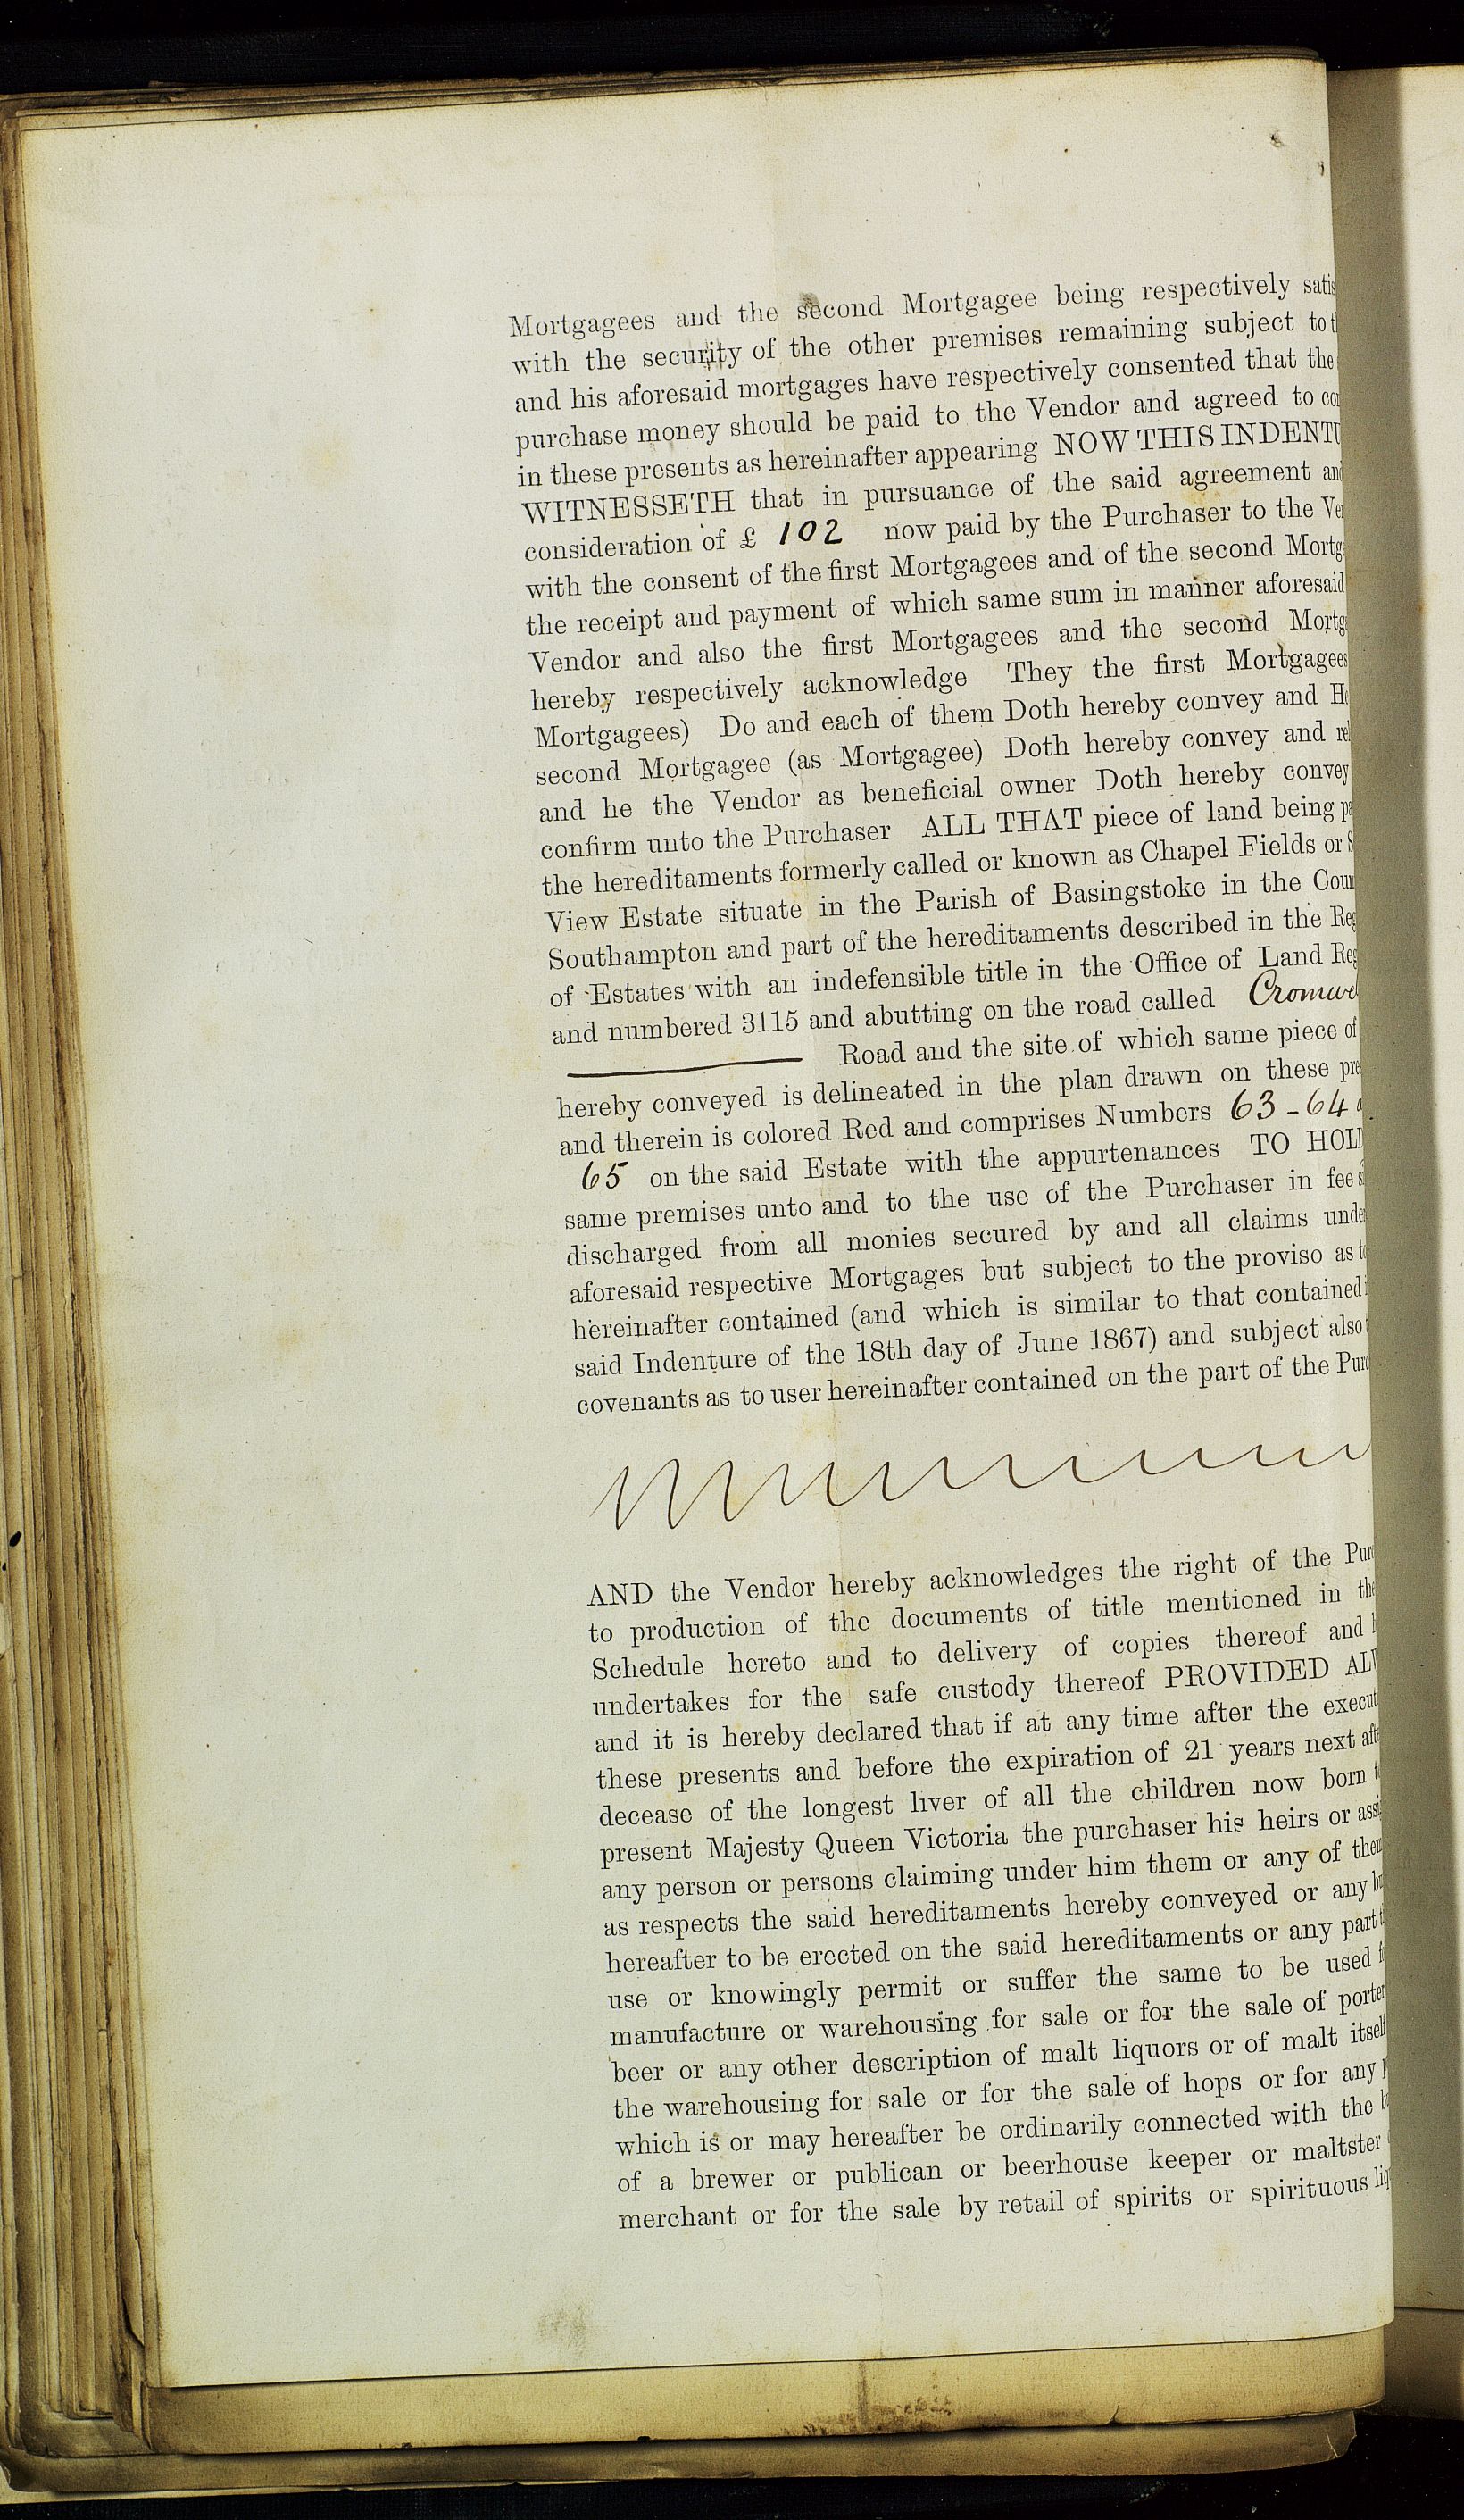 Mortgagees and the second Mortgagee being respectively satis
with the security of the other premises remaining subject to t
and his aforesaid mortgages have respectively consented that the
purchase money should be paid to the Vendor and agreed to con
in these presents as hereinafter appearing NOW THIS INDENTU
WITNESSETH that in pursuance of the said agreement and
consideration of £ 102 now paid by the Purchaser to the Ven
with the consent of the first Mortgagees and of the second Mortga
the receipt and payment of which same sum in manner aforesaid
Vendor and also the first Mortgagees and the second Mortga
hereby respectively acknowledge They the first Mortgagees
Mortgagees) Do and each of them Doth hereby convey and He
second Mortgagee (as Mortgagee) Doth hereby convey and rel
and he the Vendor as beneficial owner Doth hereby convey
confirm unto the Purchaser ALL THAT piece of land being pa
the hereditaments formerly called or known as Chapel Fields or S
View Estate situate in the Parish of Basingstoke in the Coun
Southampton and part of the hereditaments described in the Reg
of Estates with an indefensible title in the Office of Land Reg
and numbered 3115 and abutting on the road called Cromwel
Road and the site of which same piece of
hereby conveyed is delineated in the plan drawn on these pre
and therein is colored Red and comprises Numbers 63-64 a
65 on the said Estate with the appurtenances TO HOLD
same premises unto and to the use of the Purchaser in fee si
discharged from all monies secured by and all claims under
aforesaid respective Mortgages but subject to the proviso as to
hereinafter contained (and which is similar to that contained i
said Indenture of the 18th day of June 1867) and subject also
covenants as to user hereinafter contained on the part of the Purc
AND the Vendor hereby acknowledges the right of the Purc
to production of the documents of title mentioned in the
Schedule hereto and to delivery of copies thereof and h
undertakes for the safe custody thereof PROVIDED ALW
and it is hereby declared that if at any time after the execut
these presents and before the expiration of 21 years next afte
decease of the longest liver of all the children now born t
present Majesty Queen Victoria the purchaser his heirs or assi
any person or persons claiming under him them or any of them
as respects the said hereditaments hereby conveyed or any bu
hereafter to be erected on the said hereditaments or any part t
use or knowingly permit or suffer the same to be used f
manufacture or warehousing for sale or for the sale of porter
beer or any other description of malt liquors or of malt itself
the warehousing for sale or for the sale of hops or for any p
which is or may hereafter be ordinarily connected with the b
of a brewer or publican or beerhouse keeper or maltster
merchant or for the sale by retail of spirits or spirituous liq